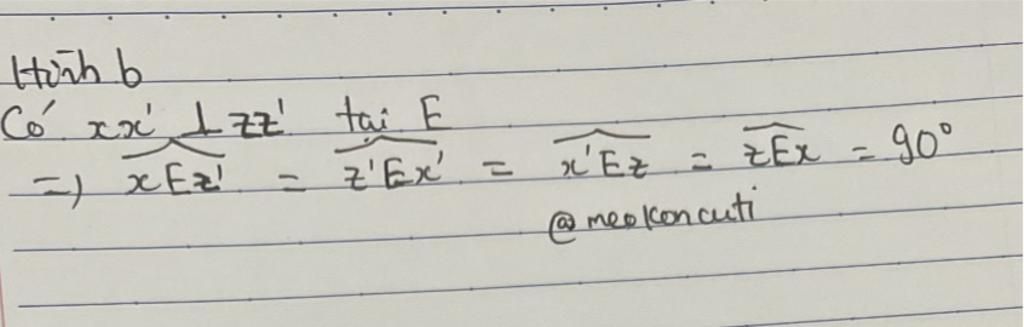 Hình b
Có xx' ⊥ zz' tại E
=) \widehat{xEz'} = \widehat{z'Ex'} = \widehat{x'Ez} = \widehat{zEx} = 90°
@meokoncuti